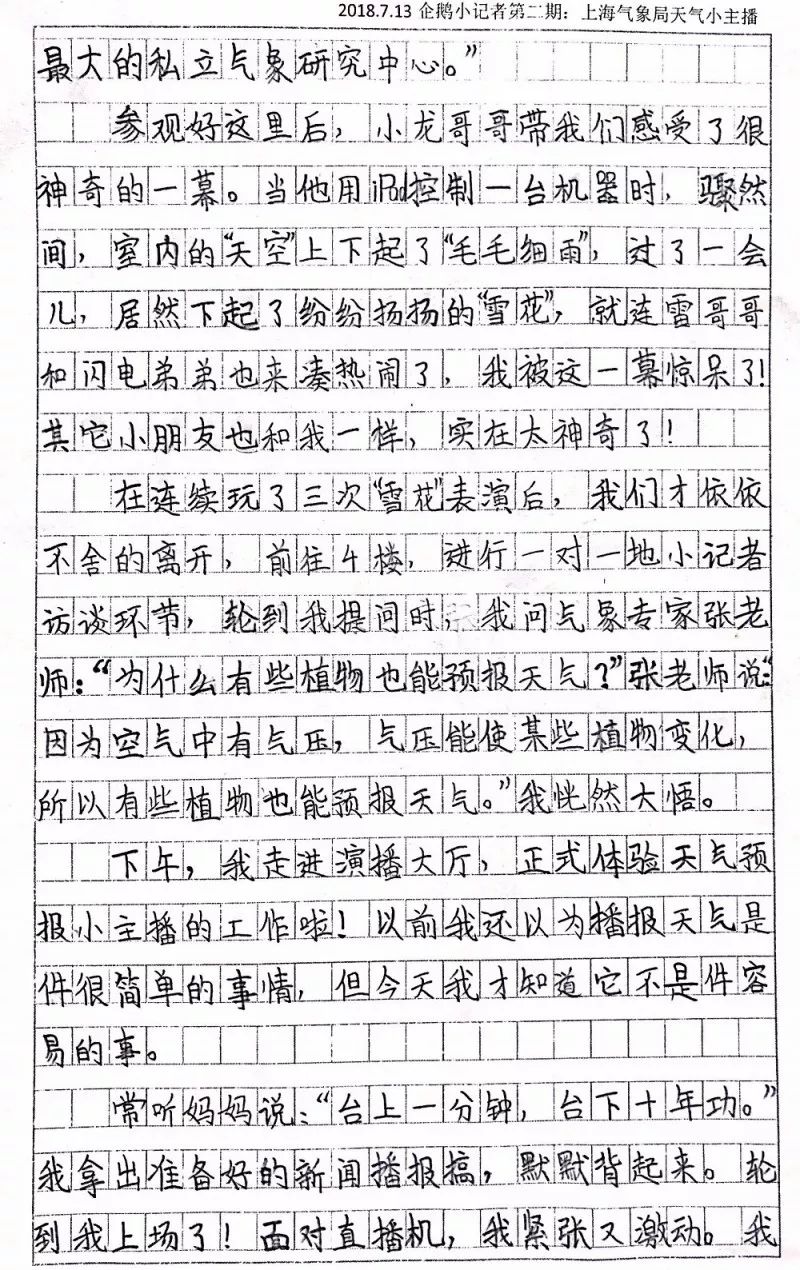 2018.7.13 企鹅小记者第二期：上海气象局天气小主播
最大的私立气象研究中心。”
参观好这里后，小龙哥哥带我们感受了很
神奇的一幕。当他用iPad控制一台机器时，骤然
间，室内的“天空”上下起了“毛毛细雨”，过了一会
儿，居然下起了纷纷扬扬的“雪花”，就连雷哥哥
和闪电弟弟也来凑热闹了，我被这一幕惊呆了！
其它小朋友也和我一样，实在太神奇了！
在连续玩了三次“雪花”表演后，我们才依依
不舍的离开，前往4楼，进行一对一地小记者
访谈环节，轮到我提问时，我问气象专家张老
师：“为什么有些植物也能预报天气？”张老师说：“
因为空气中有气压，气压能使某些植物变化，
所以有些植物也能预报天气。”我恍然大悟。
下午，我走进演播大厅，正式体验天气预
报小主播的工作啦！以前我还以为播报天气是
件很简单的事情，但今天我才知道它不是件容
易的事。
常听妈妈说：“台上一分钟，台下十年功。”
我拿出准备好的新闻播报搞，默默背起来。轮
到我上场了！面对直播机，我紧张又激动。我